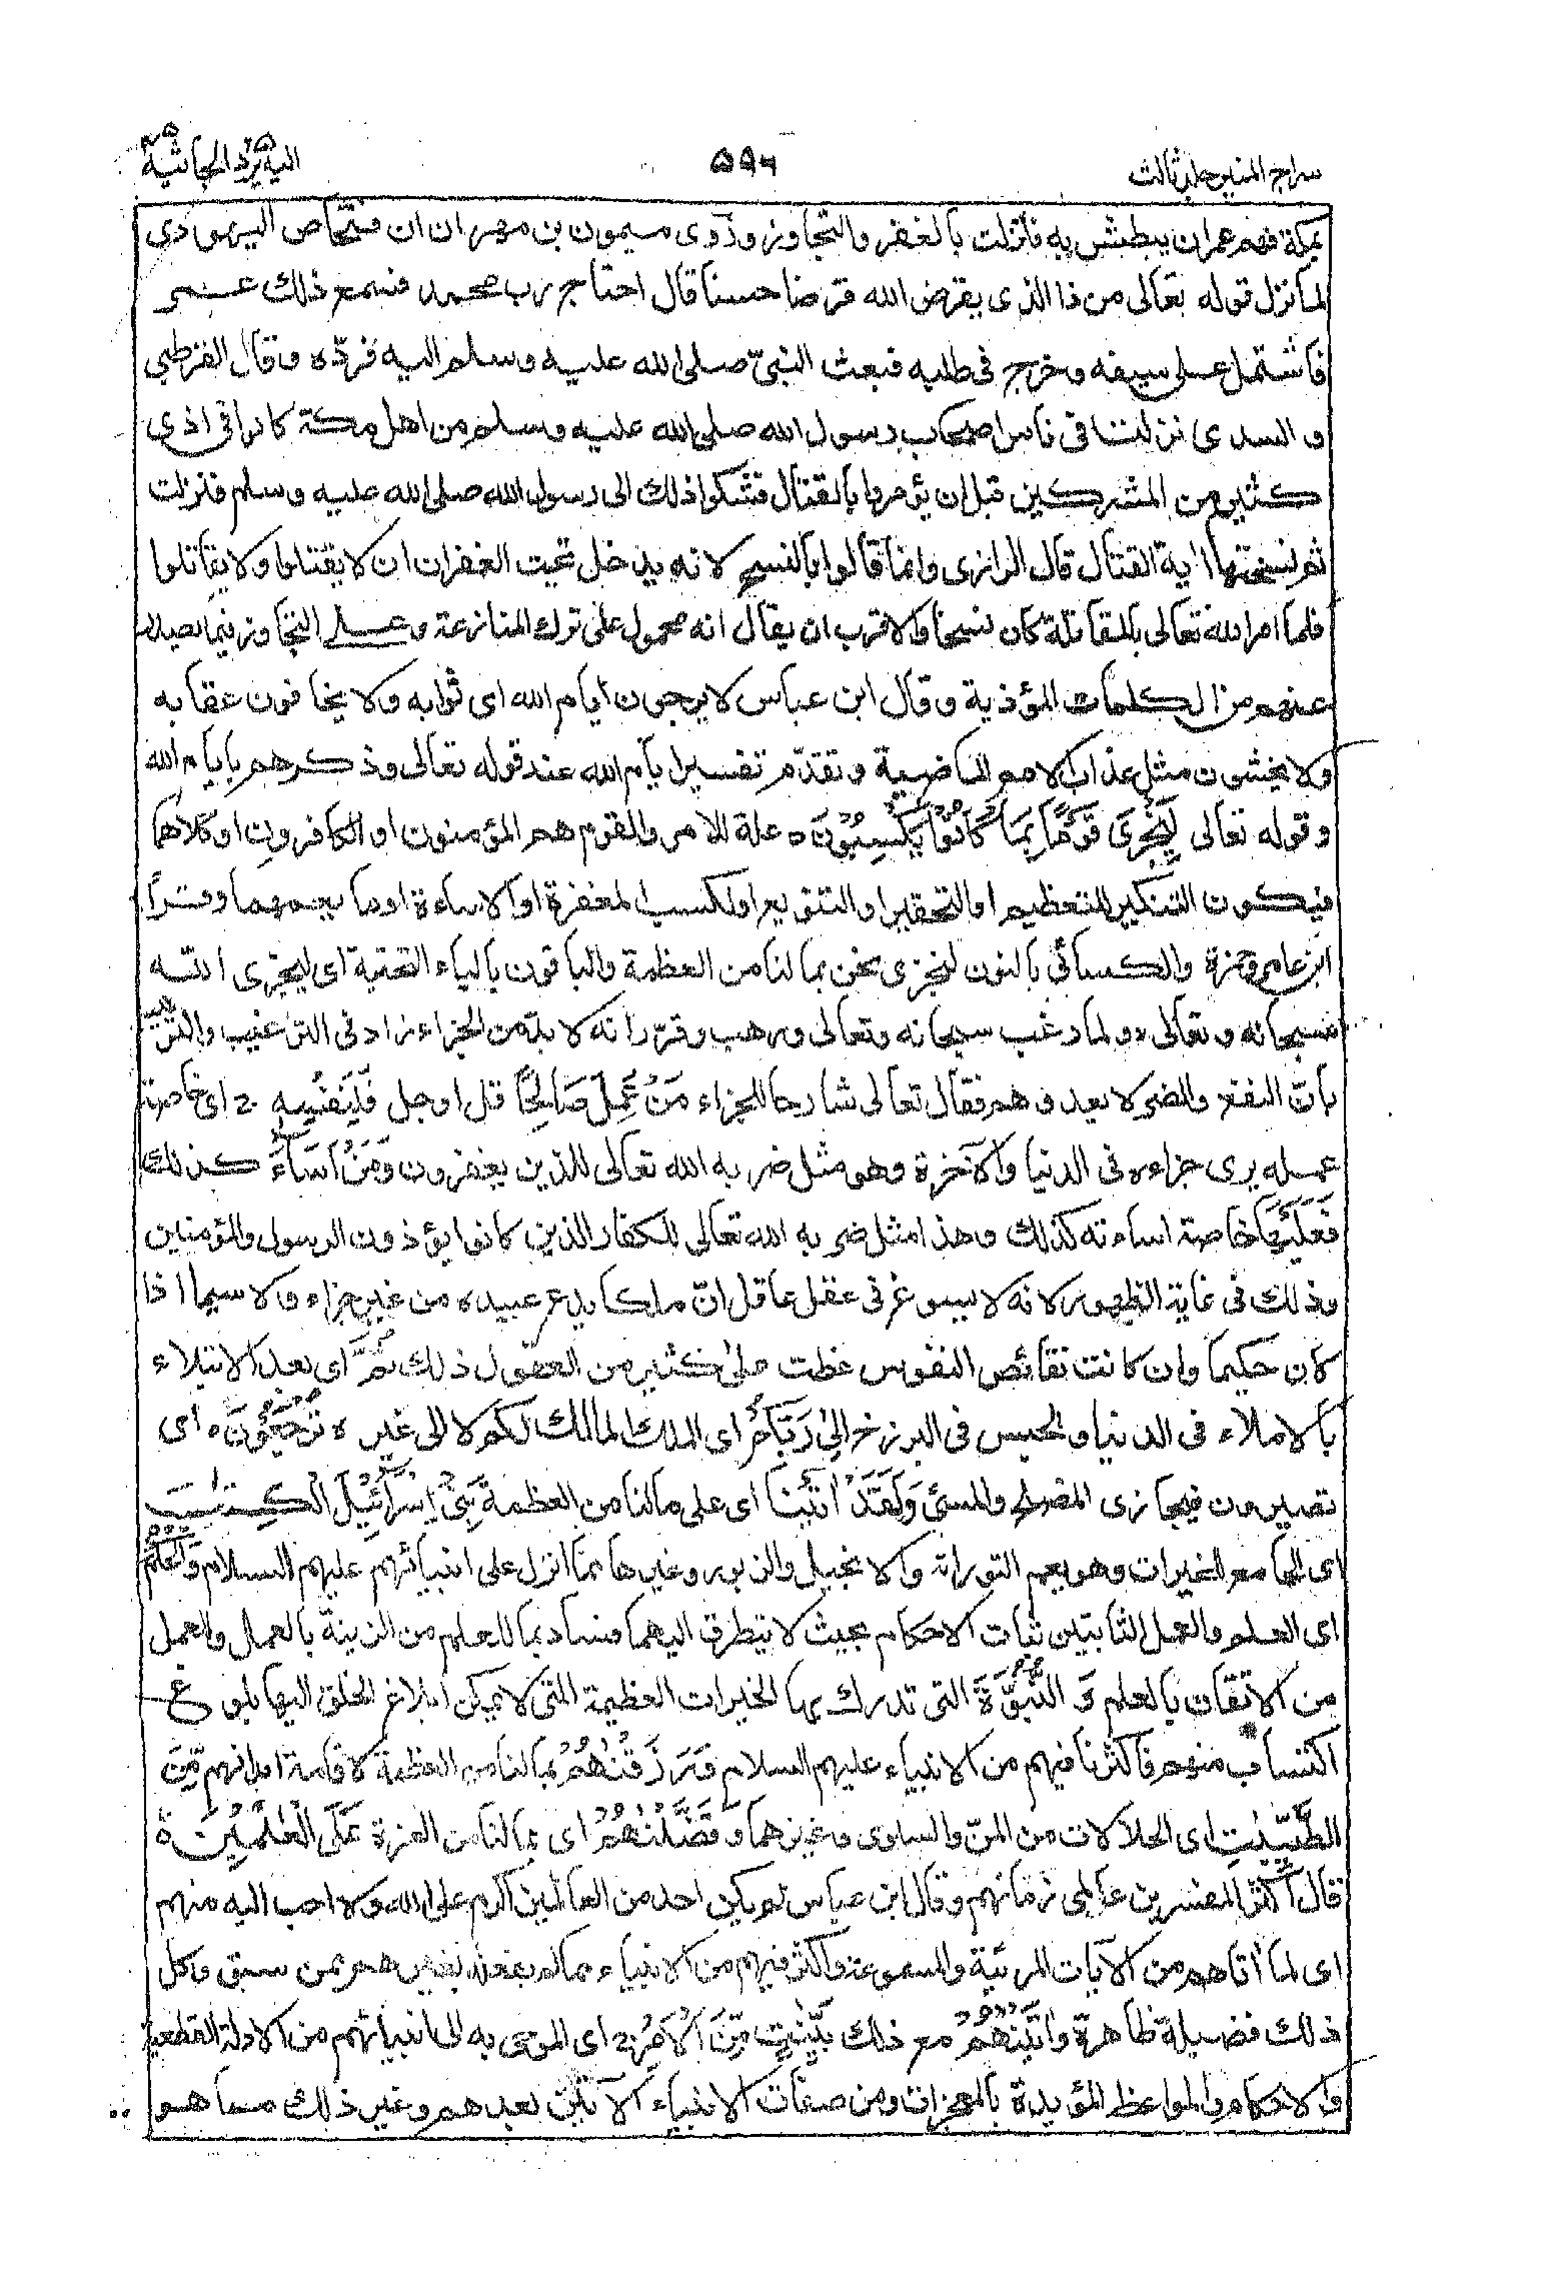 سراج المنير جلد ثالث
٥٩٦
اليه يرد الجاثية
بمكة فهم عمران يبطش به فأنزلت بالعفو والتجاوز وروى ميمون بن مهران ان فنحاص اليهودى
لما نزل قوله تعالى من ذا الذى يقرض الله قرضا حسنا قال احتاج رب محمد فسمع ذلك عمر
فاشتمل على سيفه وخرج فى طلبه فبعث النبىّ صلى الله عليه وسلم اليه فردّه وقال القرطبى
والسدى نزلت فى ناس اصحاب رسول الله صلى الله عليه وسلم من اهل مكة كانوا فى اذى
كثير من المشركين قبل ان يؤمروا بالقتال فشكوا ذلك الى رسول الله صلى الله عليه وسلم فنزلت
ثم نسختها اية القتال قال الرازى وانما قالوا بالنسخ لانه يدخل تحت الغفران ان لا يقتلوا ولا يقاتلوا
فلما امر الله تعالى بالمقاتلة كان نسخا والاقرب ان يقال انه محمول على ترك المنازعة وعلى التجاوز فيما يصدر
عنهم من الكلمات المؤذية وقال ابن عباس لا يرجون ايام الله اى ثوابه ولا يخافون عقابه
ولا يخشون مثل عذاب الامم الماضية وتقدّم تفسير ايام الله عند قوله تعالى وذكرهم بايام الله
وقوله تعالى لِيَجْزِىَ قَوْمًا بِمَا كَانُوْا يَكْسِبُوْنَ ٥ علة للامر والقوم هم المؤمنون او الكافرون او كلاهما
فيكون التنكير للتعظيم او التحقير او التنويع او لكسب المغفرة او الاساءة او ما يعمهما وقرأ
ابن عامر وحمزة والكسائى بالنون لنجزى نحن بما لنا من العظمة والباقون بالياء التحتية اى ليجزى الله
سبحانه وتعالى ٠ ولما رغب سبحانه وتعالى ورهب وقرّر انه لا بدّ من الجزاء زاد فى الترغيب والترهيب
بانّ النفع والضر لا يعدوهم فقال تعالى شارحا للجزاء مَنْ عَمِلَ صَالِحًا قل او جل فَلِنَفْسِهٖ ج اى خاصة
عمله يرى جزاءه فى الدنيا والآخرة وهو مثل ضربه الله تعالى للذين يغفرون وَمَنْ اَسَآءَ كذلك
فَعَلَيْهَا خاصة اساءته كذلك وهذا مثل ضربه الله تعالى للكفار الذين كانوا يؤذون الرسول والمؤمنين
وذلك فى غاية الظهور لانه لا يسوغ فى عقل عاقل انّ ملكا يدع عبيده من غير جزاء ولا سيما اذا
كان حكيما وان كانت نقائص النفوس غطت على كثير من العقول ذلك ثُمَّ اى بعد الابتلاء
بالاملاء فى الدنيا والحبس فى البرزخ اِلٰى رَبِّكُمْ اى الملك المالك لكم لا الى غيره تُرْجَعُوْنَ ٥ اى
تصيرون فيجازى المصلح والمسئ وَلَقَدْ اٰتَيْنَا اى على مالنا من العظمة بَنِىْٓ اِسْرَآئِيْلَ الْكِتٰبَ
اى الجامع للخيرات وهو يعم التوراة والانجيل والزبور وغيرها مما انزل على انبيائهم عليهم السلام وَالْحُكْمَ
اى العلم والعمل الثابتين ثبات الاحكام بحيث لا يتطرق اليهما فساد بما للعلم من الزينة بالعمل والعمل
من الاتقان بالعلم وَ النُّبُوَّةَ التى تدرك بها الخيرات العظيمة التى لا يمكن ابلاغ الخلق اليها بلوغ
اكتساب منهم فاكثرنا فيهم من الانبياء عليهم السلام وَرَزَقْنٰهُمْ بما لنا من العظمة لاقامة ابدانهم مِّنَ
الطَّيِّبٰتِ اى الحلالات من المنّ والسلوى وغيرهما وَفَضَّلْنٰهُمْ اى بما لنا من العزة عَلَى الْعٰلَمِيْنَ ٥
قال اكثر المفسرين عالمى زمانهم وقال ابن عباس لم يكن احد من العالمين اكرم على الله ولا احب اليه منهم
اى لما أتاهم من الآيات المرئية والمسموعة واكثر فيهم من الانبياء مما لم يفعله بغيرهم ممن سبق وكل
ذلك فضيلة ظاهرة وَاٰتَيْنٰهُمْ مع ذلك بَيِّنٰتٍ مِّنَ الْاَمْرِ ج اى الموحى به الى انبيائهم من الادلة القطعية
والاحكام والمواعظ المؤيدة بالمعجزات ومن صفات الانبياء الآتين بعدهم وغير ذلك مما هو